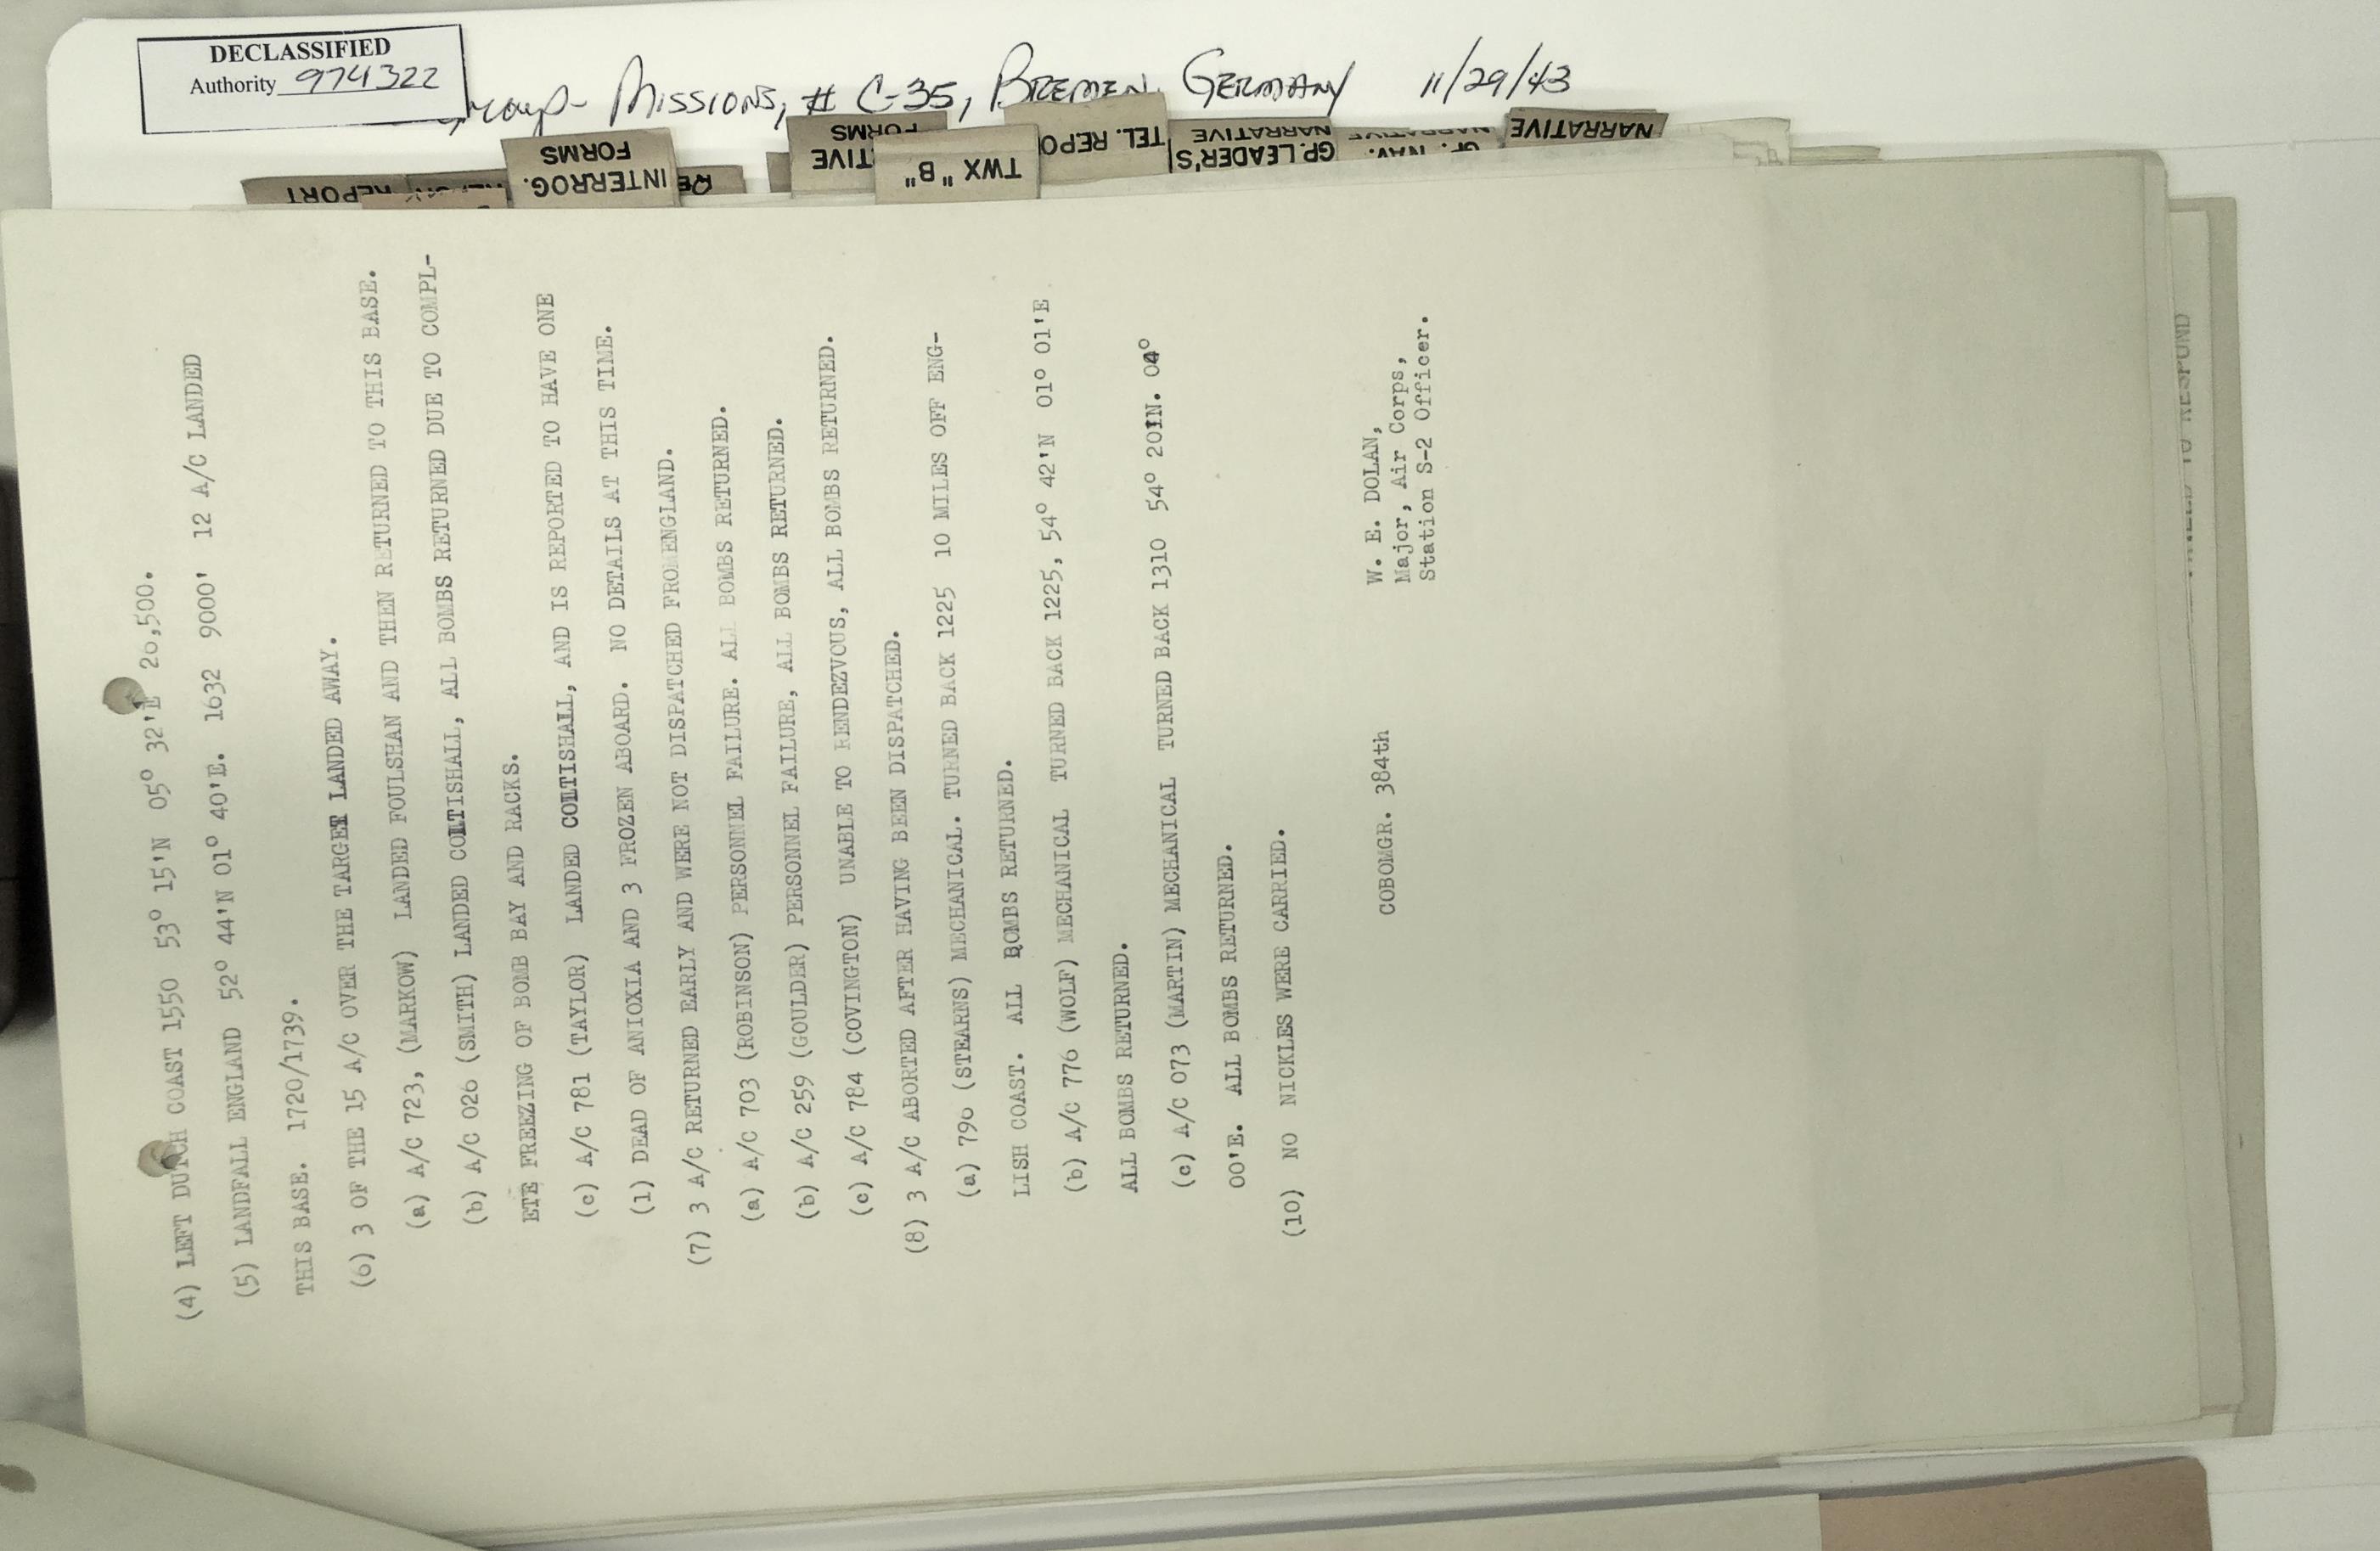 DECLASSIFIED
Authority 974322
Group- Missions, # C-35, Bremen, Germany 11/29/43
REPORT
REPORT
INTERROG.
FORMS
FORMS
TWX "B"
TEL. REPO
GP. LEADER'S
NARRATIVE
GP. NAV.
NARRATIVE
NARRATIVE
(4) LEFT DUTCH COAST 1550 53° 15'N 05° 32'E 26,500.
(5) LANDFALL ENGLAND 52° 44'N 01° 40'E. 1632 9000' 12 A/C LANDED
THIS BASE. 1720/1739.
(6) 3 OF THE 15 A/C OVER THE TARGET LANDED AWAY.
(a) A/C 723, (MARKOW) LANDED FOULSHAN AND THEN RETURNED TO THIS BASE.
(b) A/C 026 (SMITH) LANDED COLTISHALL, ALL BOMBS RETURNED DUE TO COMPL-
ETE FREEZING OF BOMB BAY AND RACKS.
(c) A/C 781 (TAYLOR) LANDED COLTISHALL, AND IS REPORTED TO HAVE ONE
(1) DEAD OF ANIOXIA AND 3 FROZEN ABOARD. NO DETAILS AT THIS TIME.
(7) 3 A/C RETURNED EARLY AND WERE NOT DISPATCHED FROM ENGLAND.
(a) A/C 703 (ROBINSON) PERSONNEL FAILURE. ALL BOMBS RETURNED.
(b) A/C 259 (GOULDER) PERSONNEL FAILURE, ALL BOMBS RETURNED.
(c) A/C 784 (COVINGTON) UNABLE TO RENDEZVOUS, ALL BOMBS RETURNED.
(8) 3 A/C ABORTED AFTER HAVING BEEN DISPATCHED.
(a) 796 (STEARNS) MECHANICAL. TURNED BACK 1225 10 MILES OFF ENG-
LISH COAST. ALL BOMBS RETURNED.
(b) A/C 776 (WOLF) MECHANICAL TURNED BACK 1225, 54° 42'N 01° 01'E
ALL BOMBS RETURNED.
(c) A/C 073 (MARTIN) MECHANICAL TURNED BACK 1310 54° 20IN. 04°
00'E. ALL BOMBS RETURNED.
(10) NO NICKLES WERE CARRIED.
COBOMGR. 384th
W. E. DOLAN,
Major, Air Corps,
Station S-2 Officer.
RESPOND